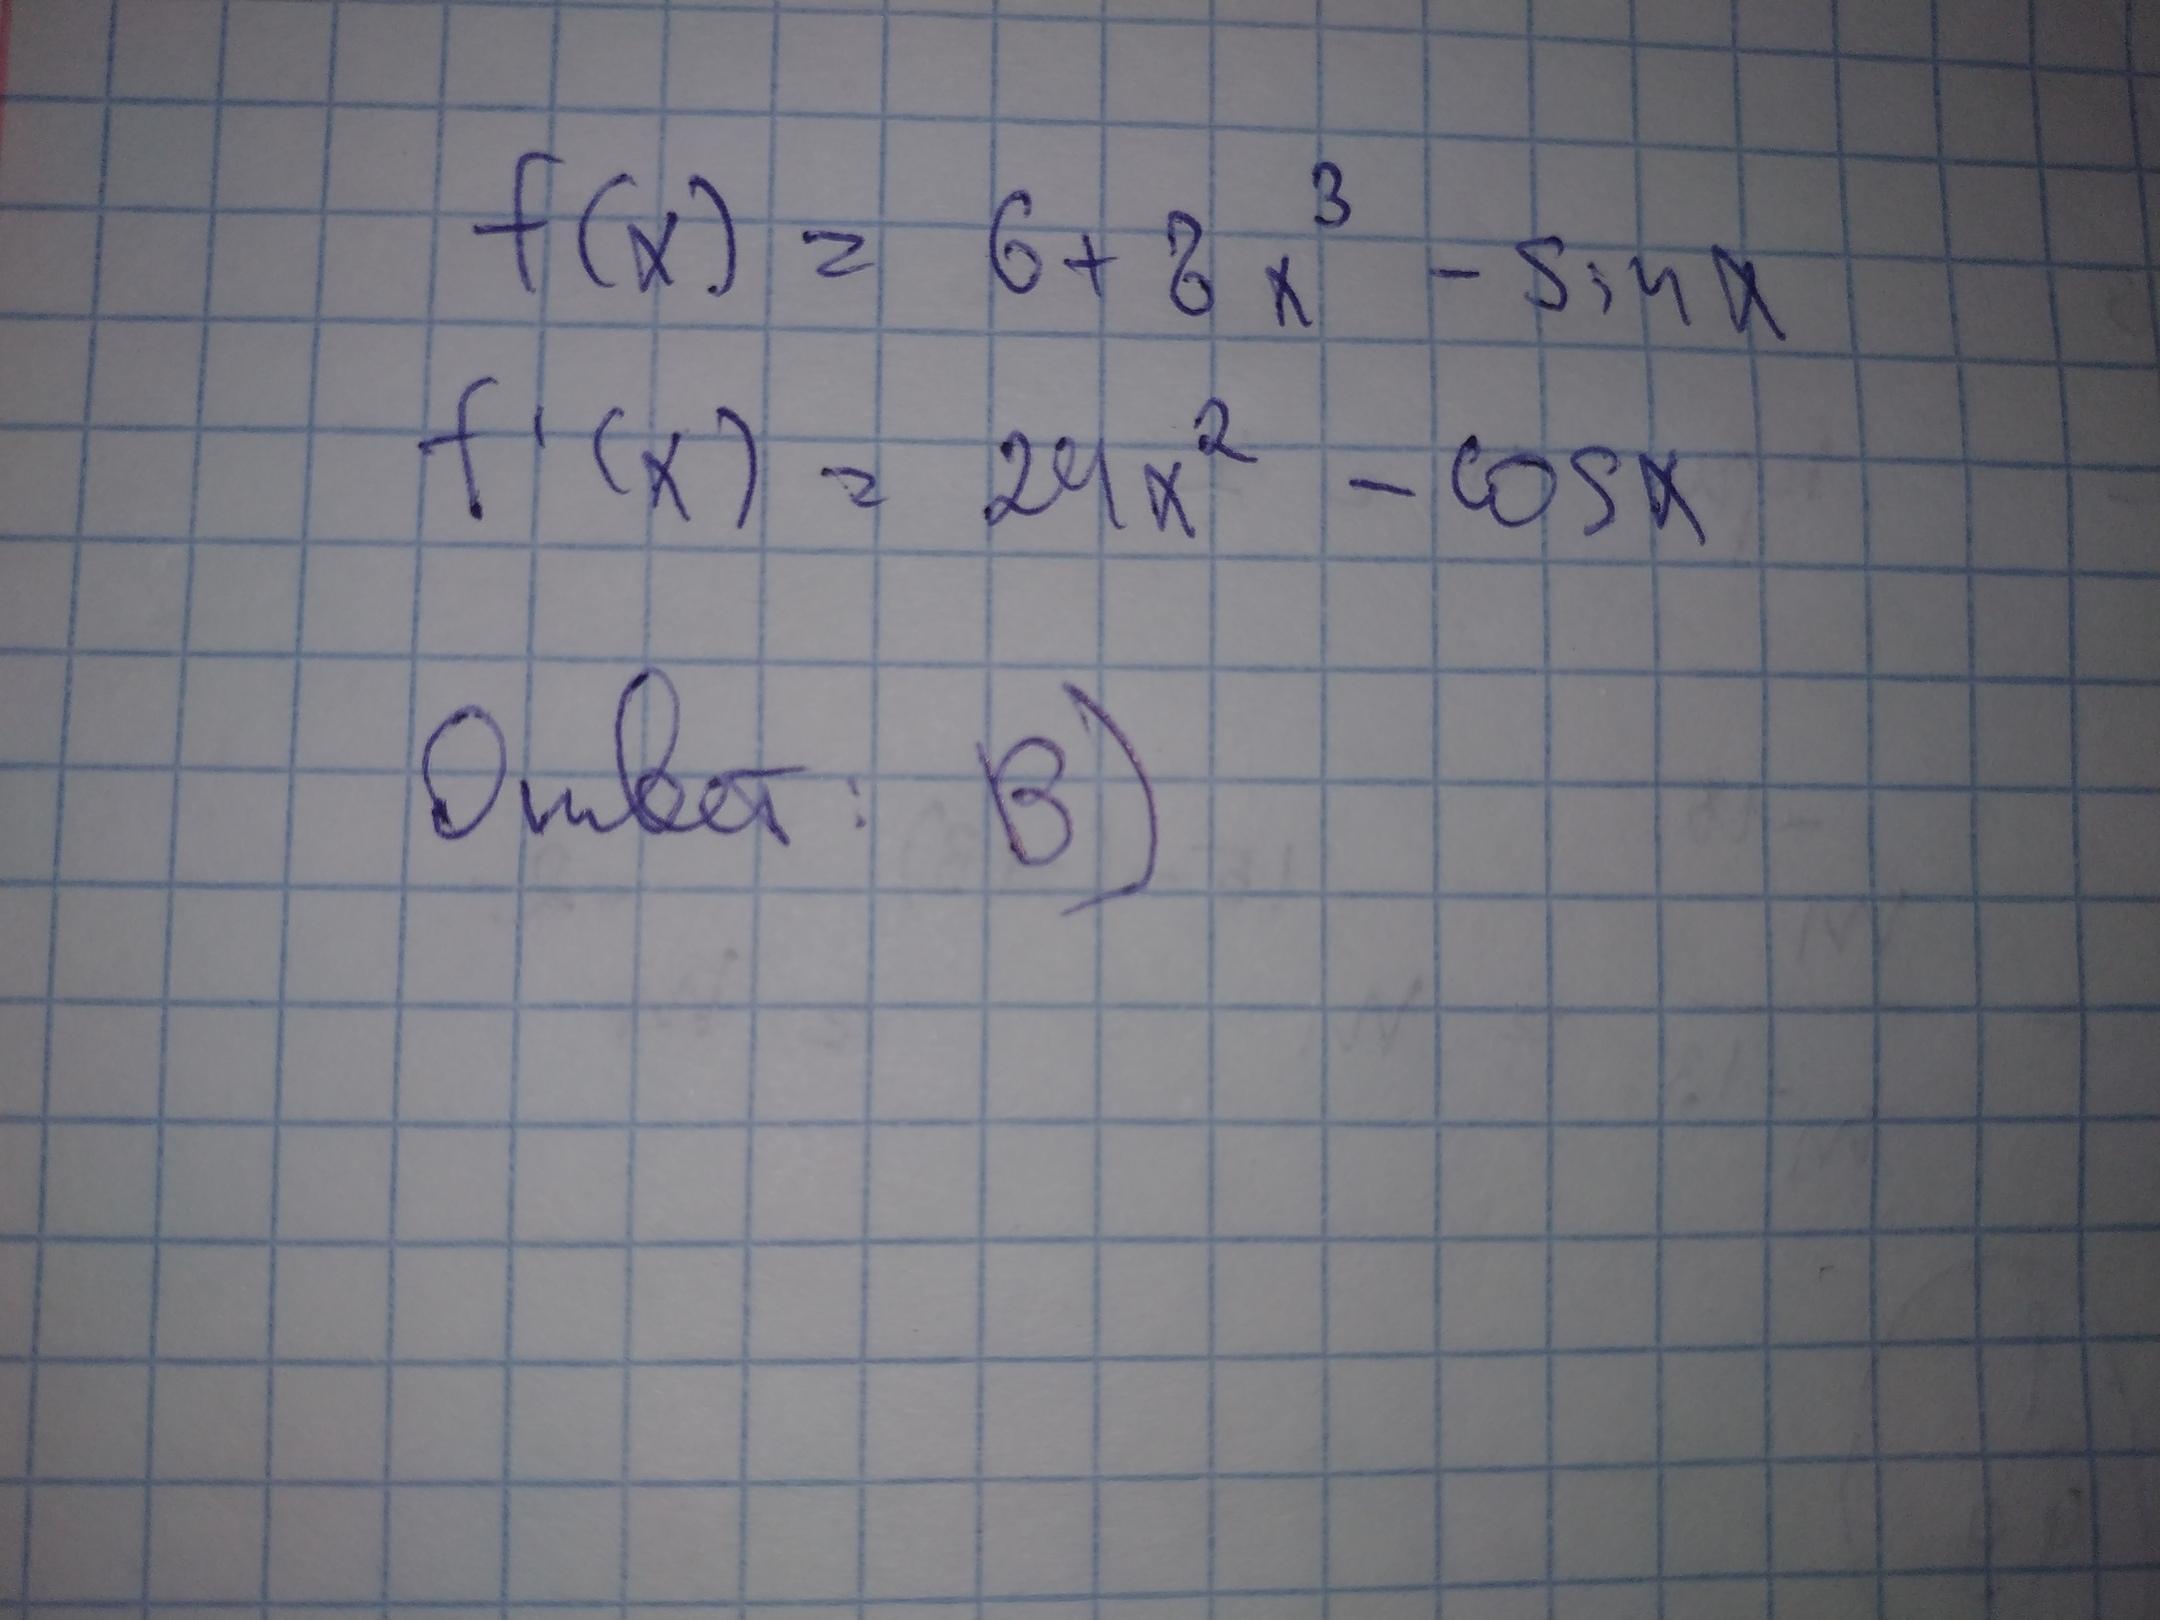 f(x) = 6 + 8x³ - sin x
f'(x) = 24x² - cos x
Ответ: В)